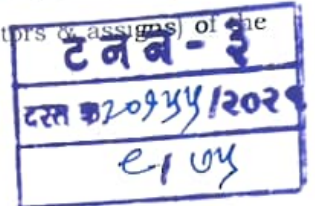 tors & assigns) of the
ट न न - ३
दस्त क्र २०१५५/२०२१
९/ ७५